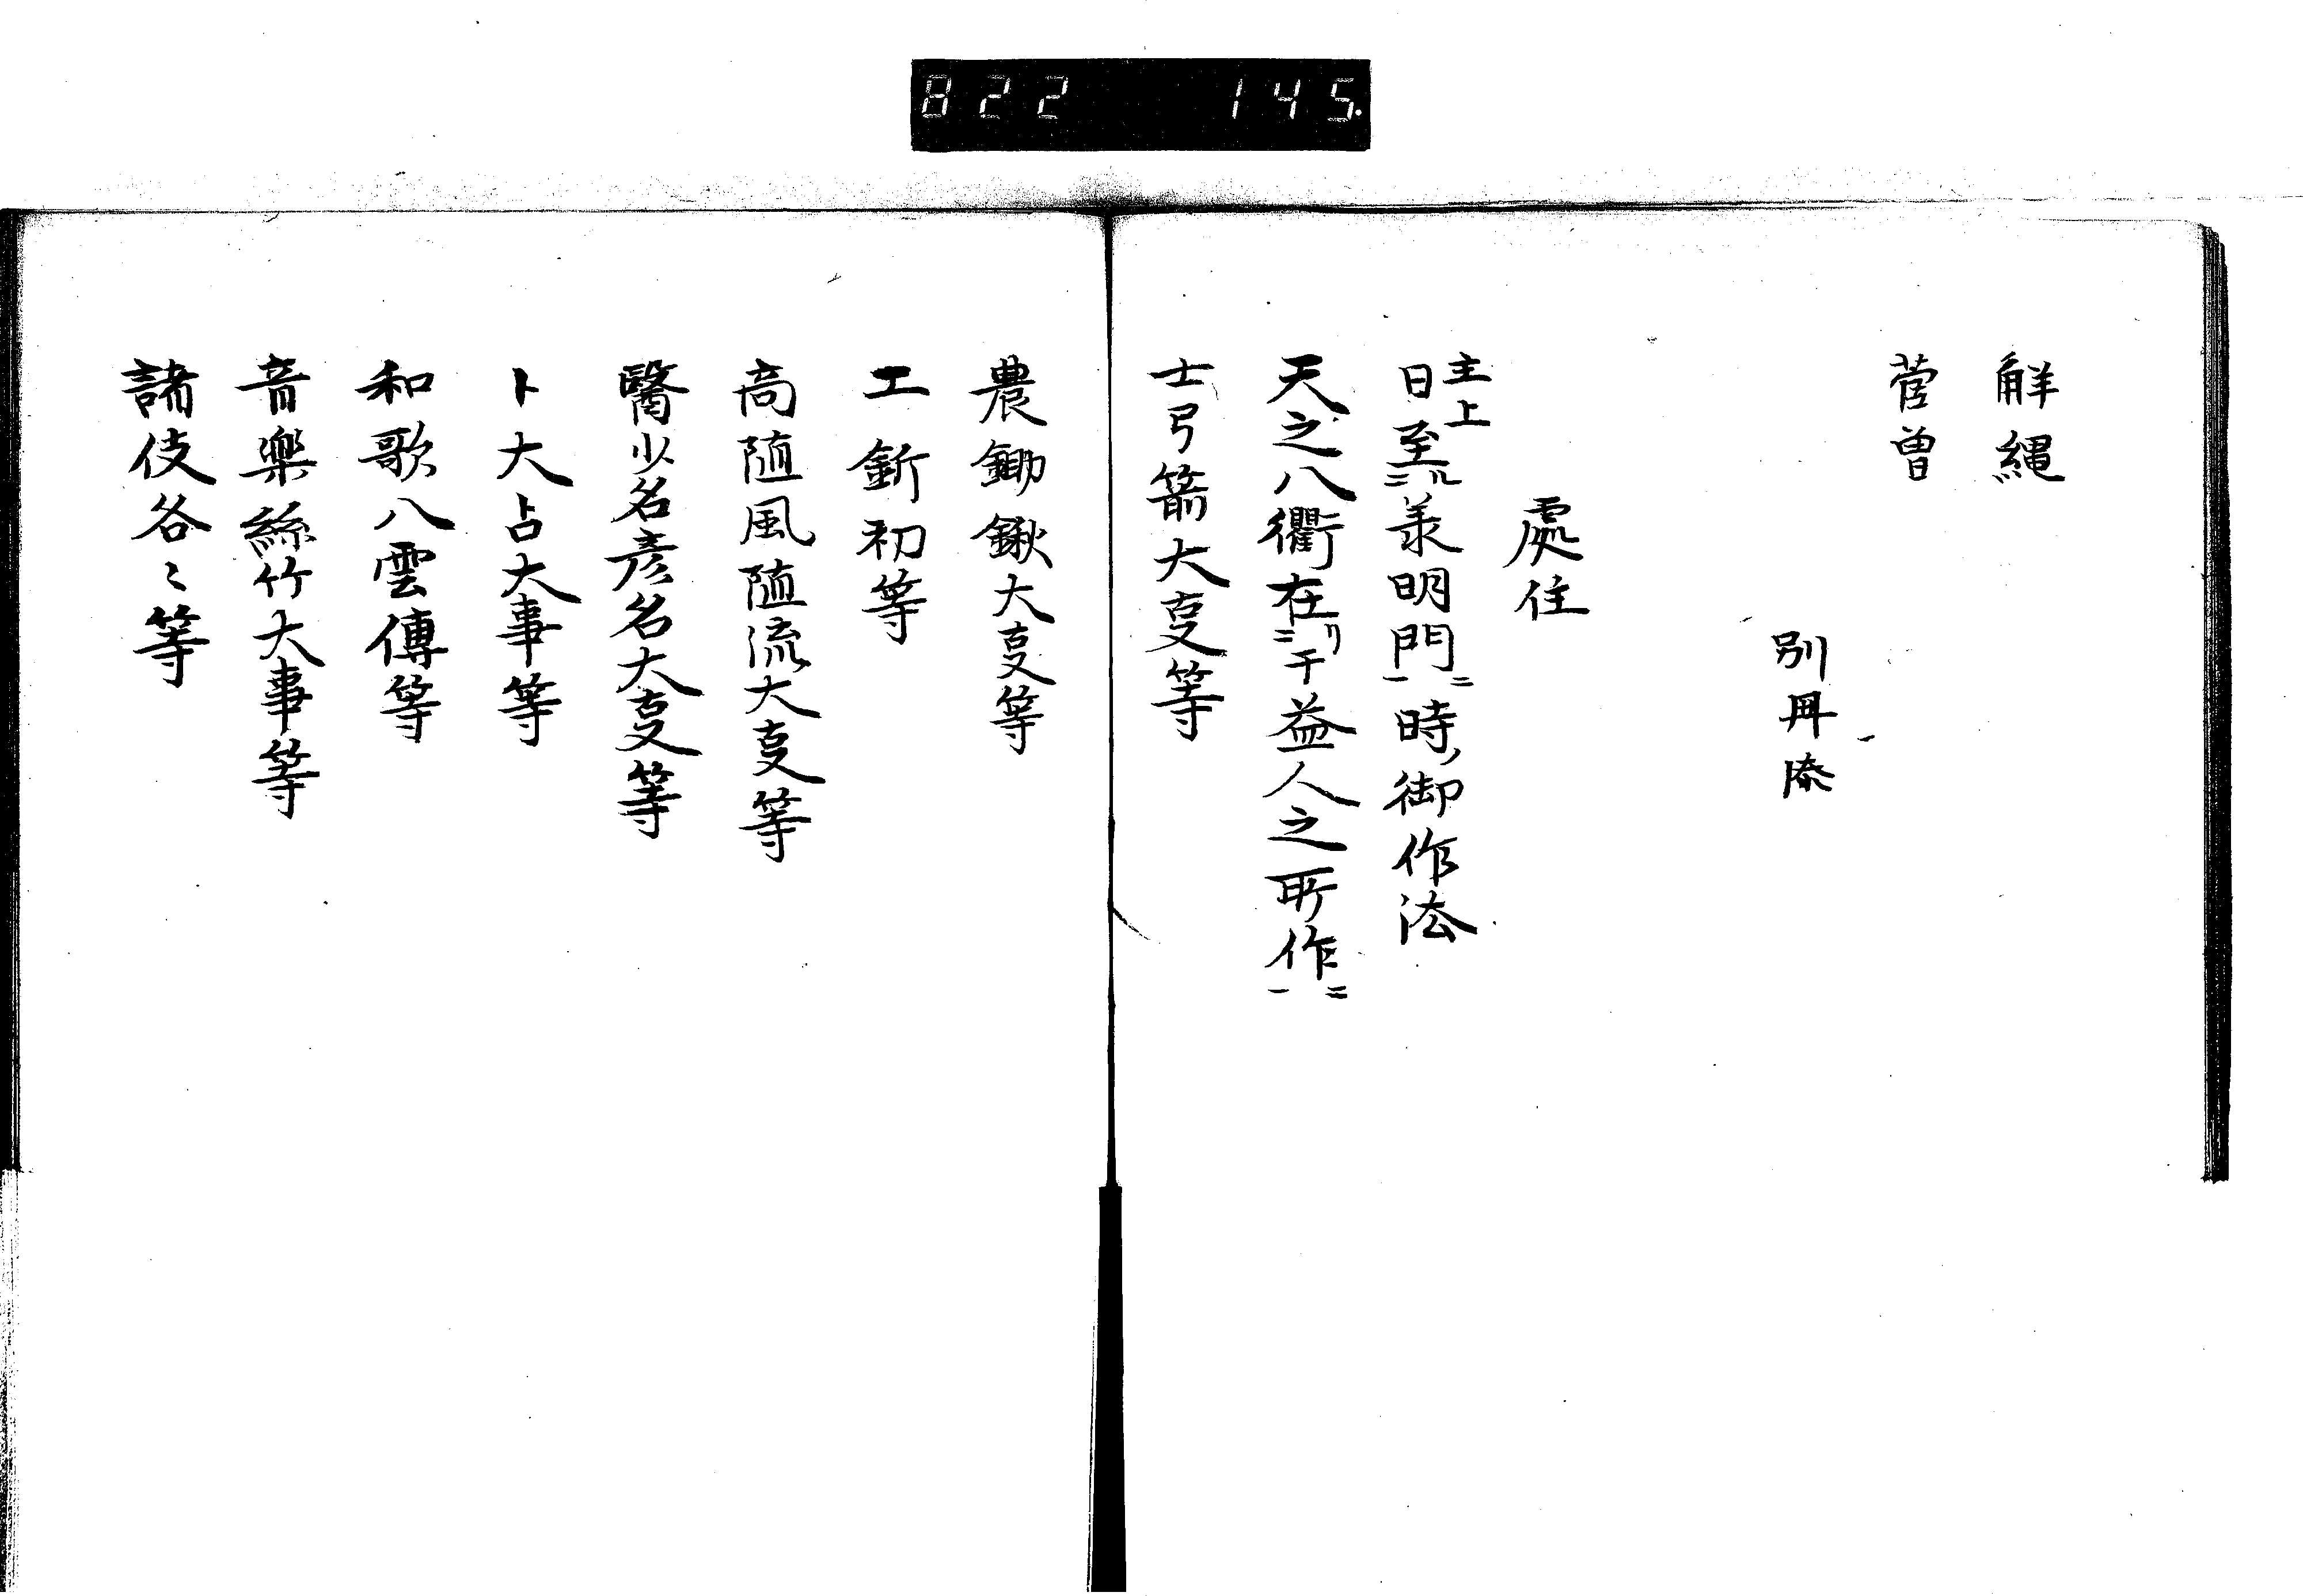 822 145.
解縄
菅曽
別冊添
處住
主上
日至ル二羕明門一ニ時、御作法
天之八衢在リ二テ益人之所作一ニ
士弓箭大叓等
農鋤鍬大叓等
工釿初等
商随風随流大叓等
醫少名彦名大叓等
卜大占大事等
和歌八雲傳等
音樂絲竹大事等
諸伎各〻等